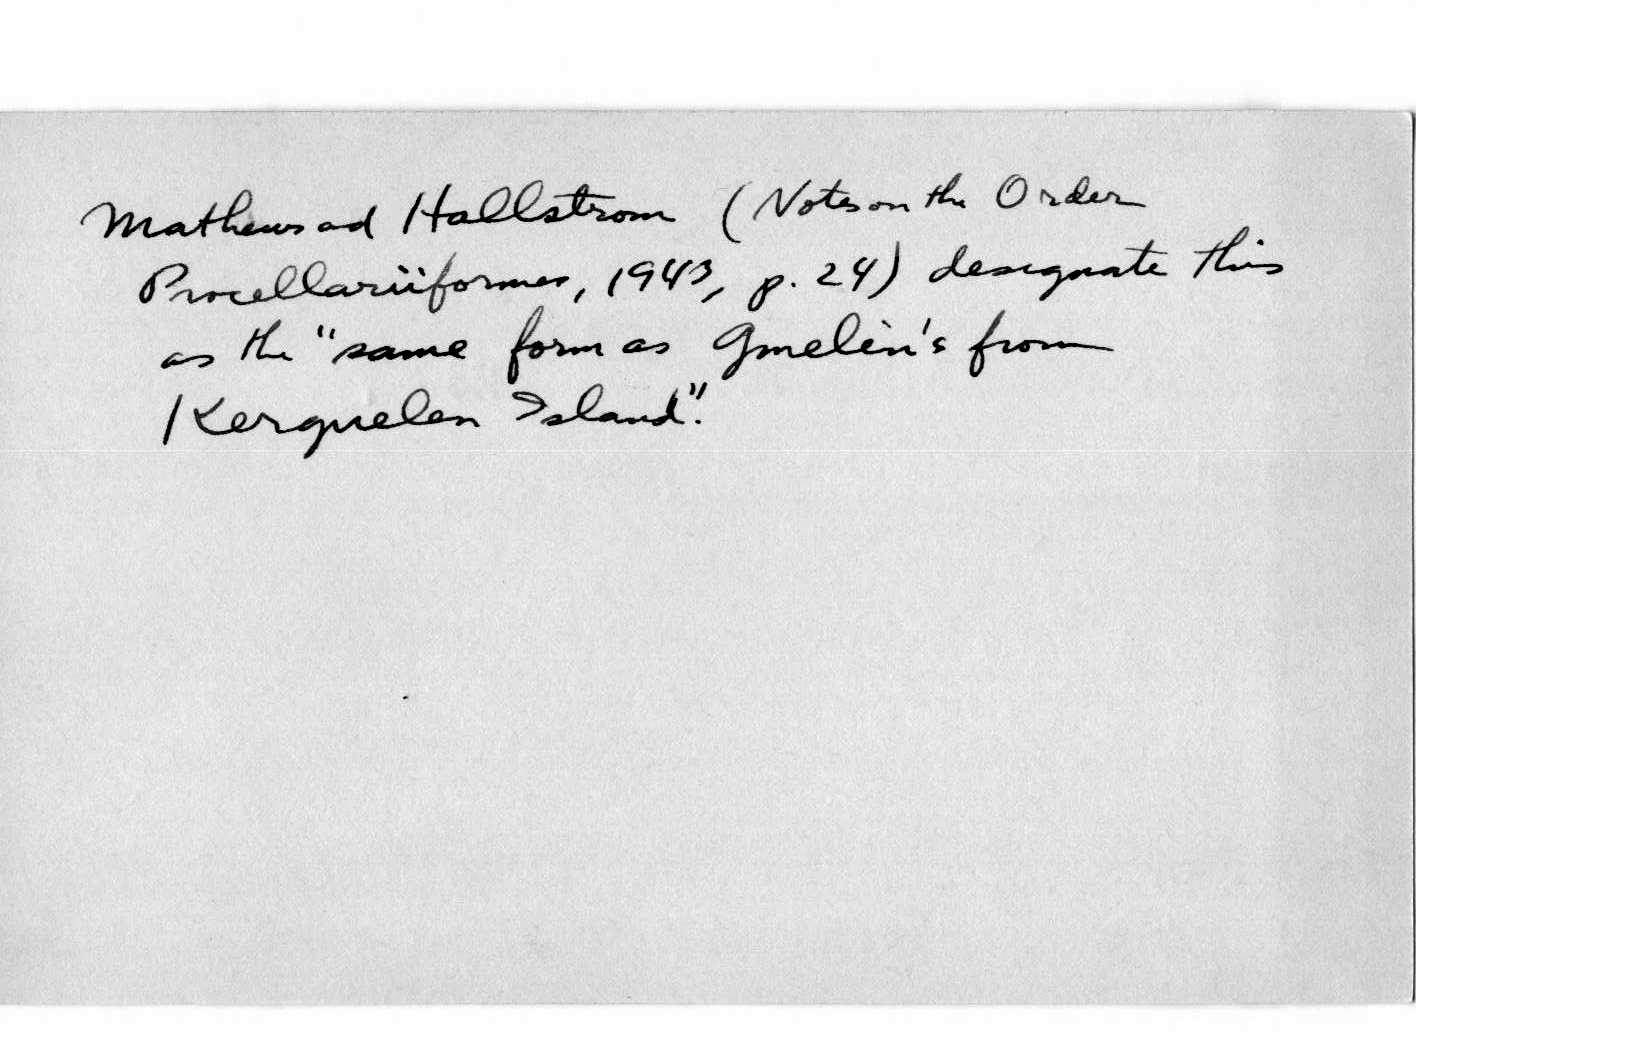 Mathews and Hallstrom (Notes on the Order
Procellariiformes, 1943, p. 24) designate this
as the "same form as Gmelin's from
Kerguelen Island".